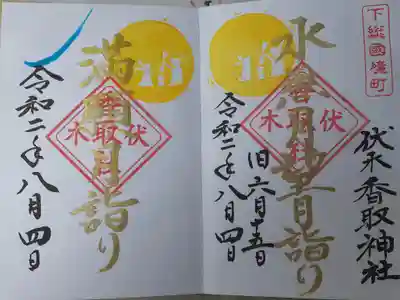 下総國境町
伏木香取神社
水無月望月詣り
伏木
香取社
旧六月十五日
令和二年八月四日
月詣り
伏木
香取社
令和二年八月四日